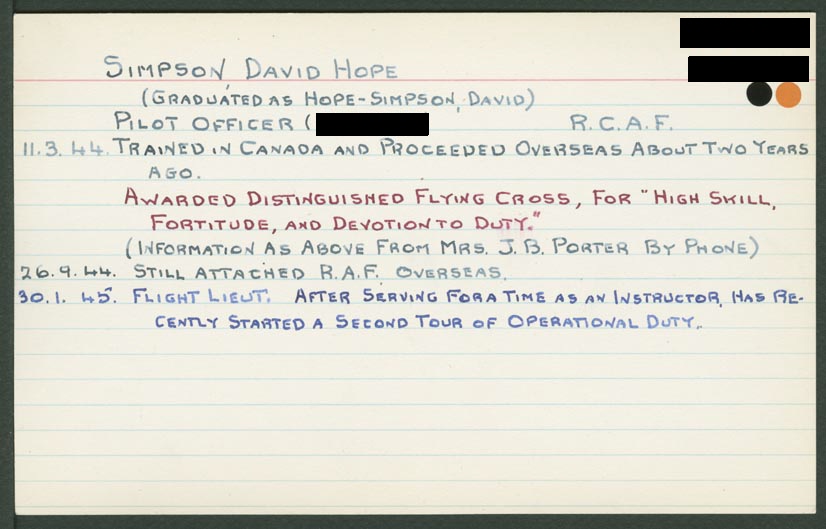 SIMPSON, DAVID HOPE
(GRADUATED AS HOPE-SIMPSON, DAVID)
PILOT OFFICER (
R.C.A.F.
11.3.44. TRAINED IN CANADA AND PROCEEDED OVERSEAS ABOUT TWO YEARS
AGO.
AWARDED DISTINGUISHED FLYING CROSS, FOR "HIGH SKILL,
FORTITUDE, AND DEVOTION TO DUTY."
(INFORMATION AS ABOVE FROM MRS. J. B. PORTER BY PHONE)
26.9.44. STILL ATTACHED R.A.F. OVERSEAS.
30.1.45. FLIGHT LIEUT. AFTER SERVING FOR A TIME AS AN INSTRUCTOR, HAS RE-
CENTLY STARTED A SECOND TOUR OF OPERATIONAL DUTY.